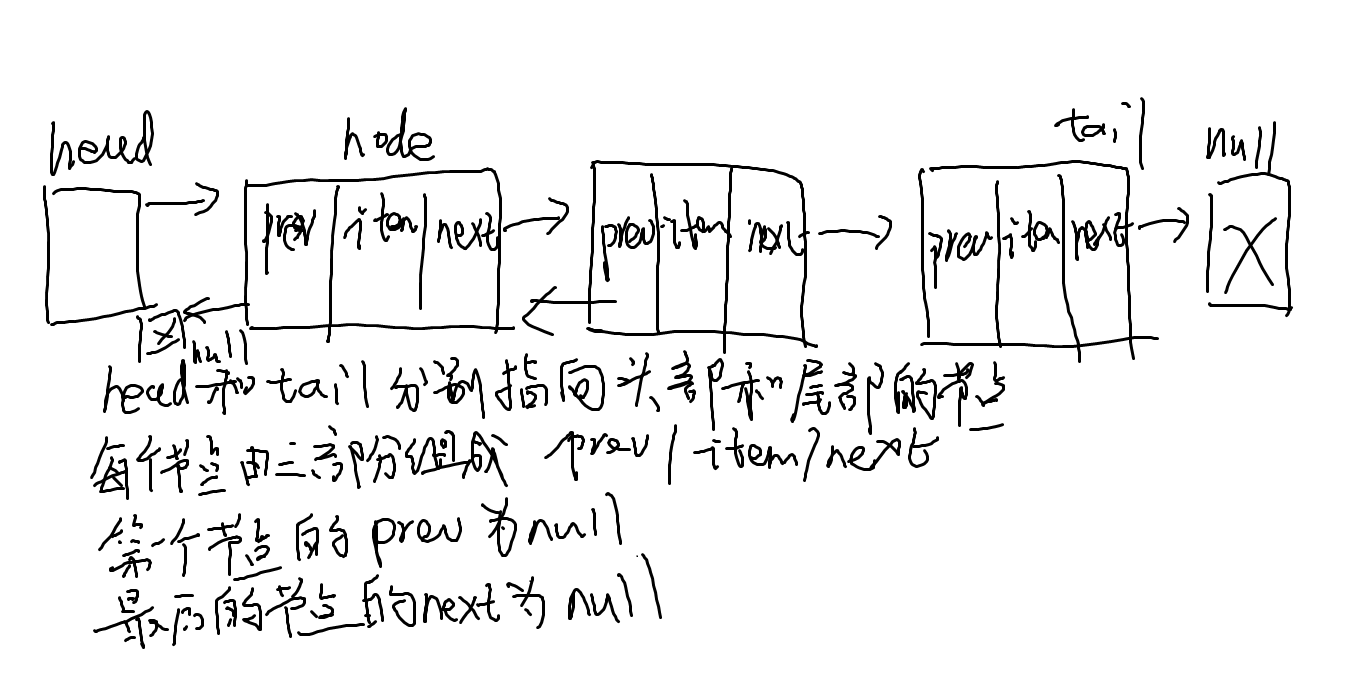 head node tail null
prev item next prev item next prev item next
null
head和tail分别指向头部和尾部的节点
每个节点由三部份组成 prev/item/next
第一个节点的prev为null
最后的节点的next为null